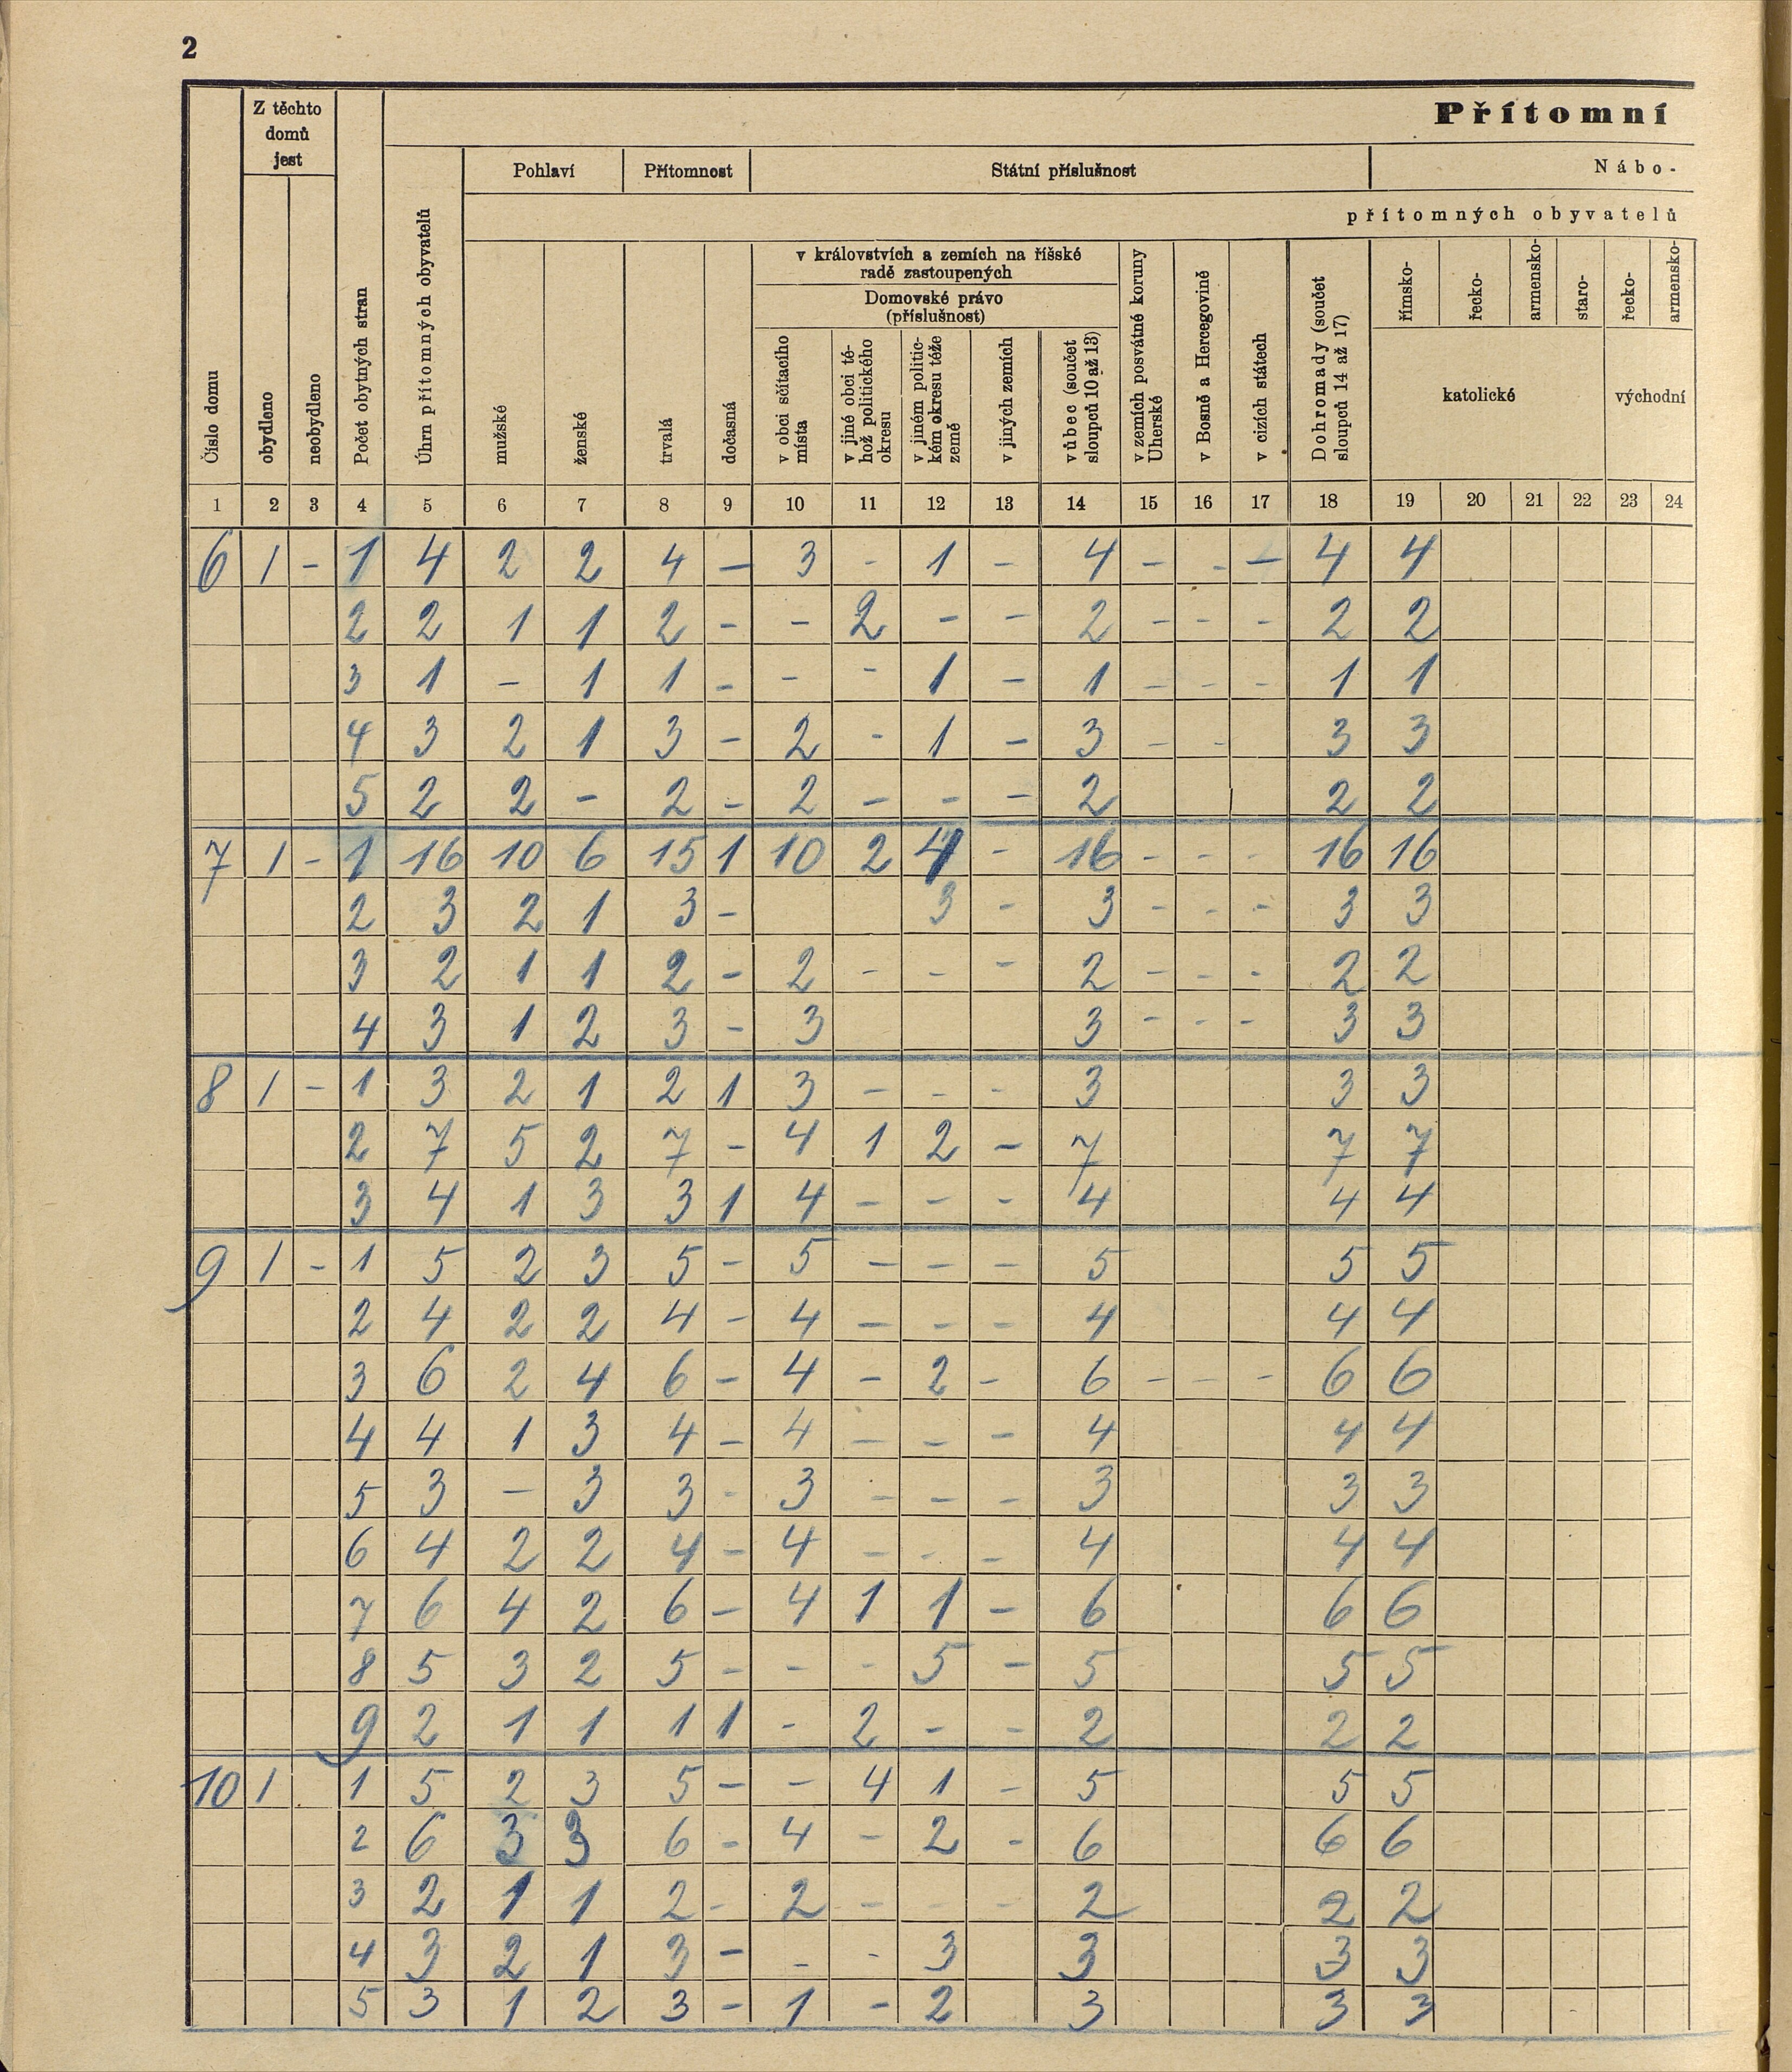 2
Přítomní
Z těchto domů jest
Pohlaví Přítomnost Státní příslušnost Nábo-
přítomných obyvatelů
v královstvích a zemích na říšské
radě zastoupených
Domovské právo
(příslušnost)
Číslo domu
obydleno
neobydleno
Počet obytných stran
Úhrn přítomných obyvatelů
mužské
ženské
trvalá
dočasná
v obci sčítacího místa
v jiné obci té-hož politického okresu
v jiném politic-kém okresu téže země
v jiných zemích
vůbec (součet sloupců 10 až 13)
v zemích posvátné koruny Uherské
v Bosně a Hercegovině
v cizích státech
Dohromady (součet sloupců 14 až 17)
římsko-
řecko-
armensko-
staro-
řecko-
armensko-
katolické východní
1 2 3 4 5 6 7 8 9 10 11 12 13 14 15 16 17 18 19 20 21 22 23 24
6 1 - 1 4 2 2 4 - 3 - 1 - 4 - - - 4 4
2 2 1 1 2 - - 2 - - 2 - - - 2 2
3 1 - 1 1 - - - 1 - 1 - - - 1 1
4 3 2 1 3 - 2 - 1 - 3 - - 3 3
5 2 2 - 2 - 2 - - - 2 2 2
7 1 - 1 16 10 6 15 1 10 2 4 - 16 - - - 16 16
2 3 2 1 3 - 3 - 3 - - - 3 3
3 2 1 1 2 - 2 - - - 2 - - - 2 2
4 3 1 2 3 - 3 3 - - - 3 3
8 1 - 1 3 2 1 2 1 3 - - - 3 3 3
2 7 5 2 7 - 4 1 2 - 7 7 7
3 4 1 3 3 1 4 - - - 4 4 4
9 1 - 1 5 2 3 5 - 5 - - - 5 5 5
2 4 2 2 4 - 4 - - - 4 4 4
3 6 2 4 6 - 4 - 2 - 6 - - - 6 6
4 4 1 3 4 - 4 - - - 4 4 4
5 3 - 3 3 - 3 - - - 3 3 3
6 4 2 2 4 - 4 - - - 4 4 4
7 6 4 2 6 - 4 1 1 - 6 6 6
8 5 3 2 5 - - - 5 - 5 5 5
9 2 1 1 1 1 - 2 - - 2 2 2
10 1 1 5 2 3 5 - - 4 1 - 5 5 5
2 6 3 3 6 - 4 - 2 - 6 6 6
3 2 1 1 2 - 2 - - - 2 2 2
4 3 2 1 3 - - - 3 3 3 3
5 3 1 2 3 - 1 - 2 3 3 3